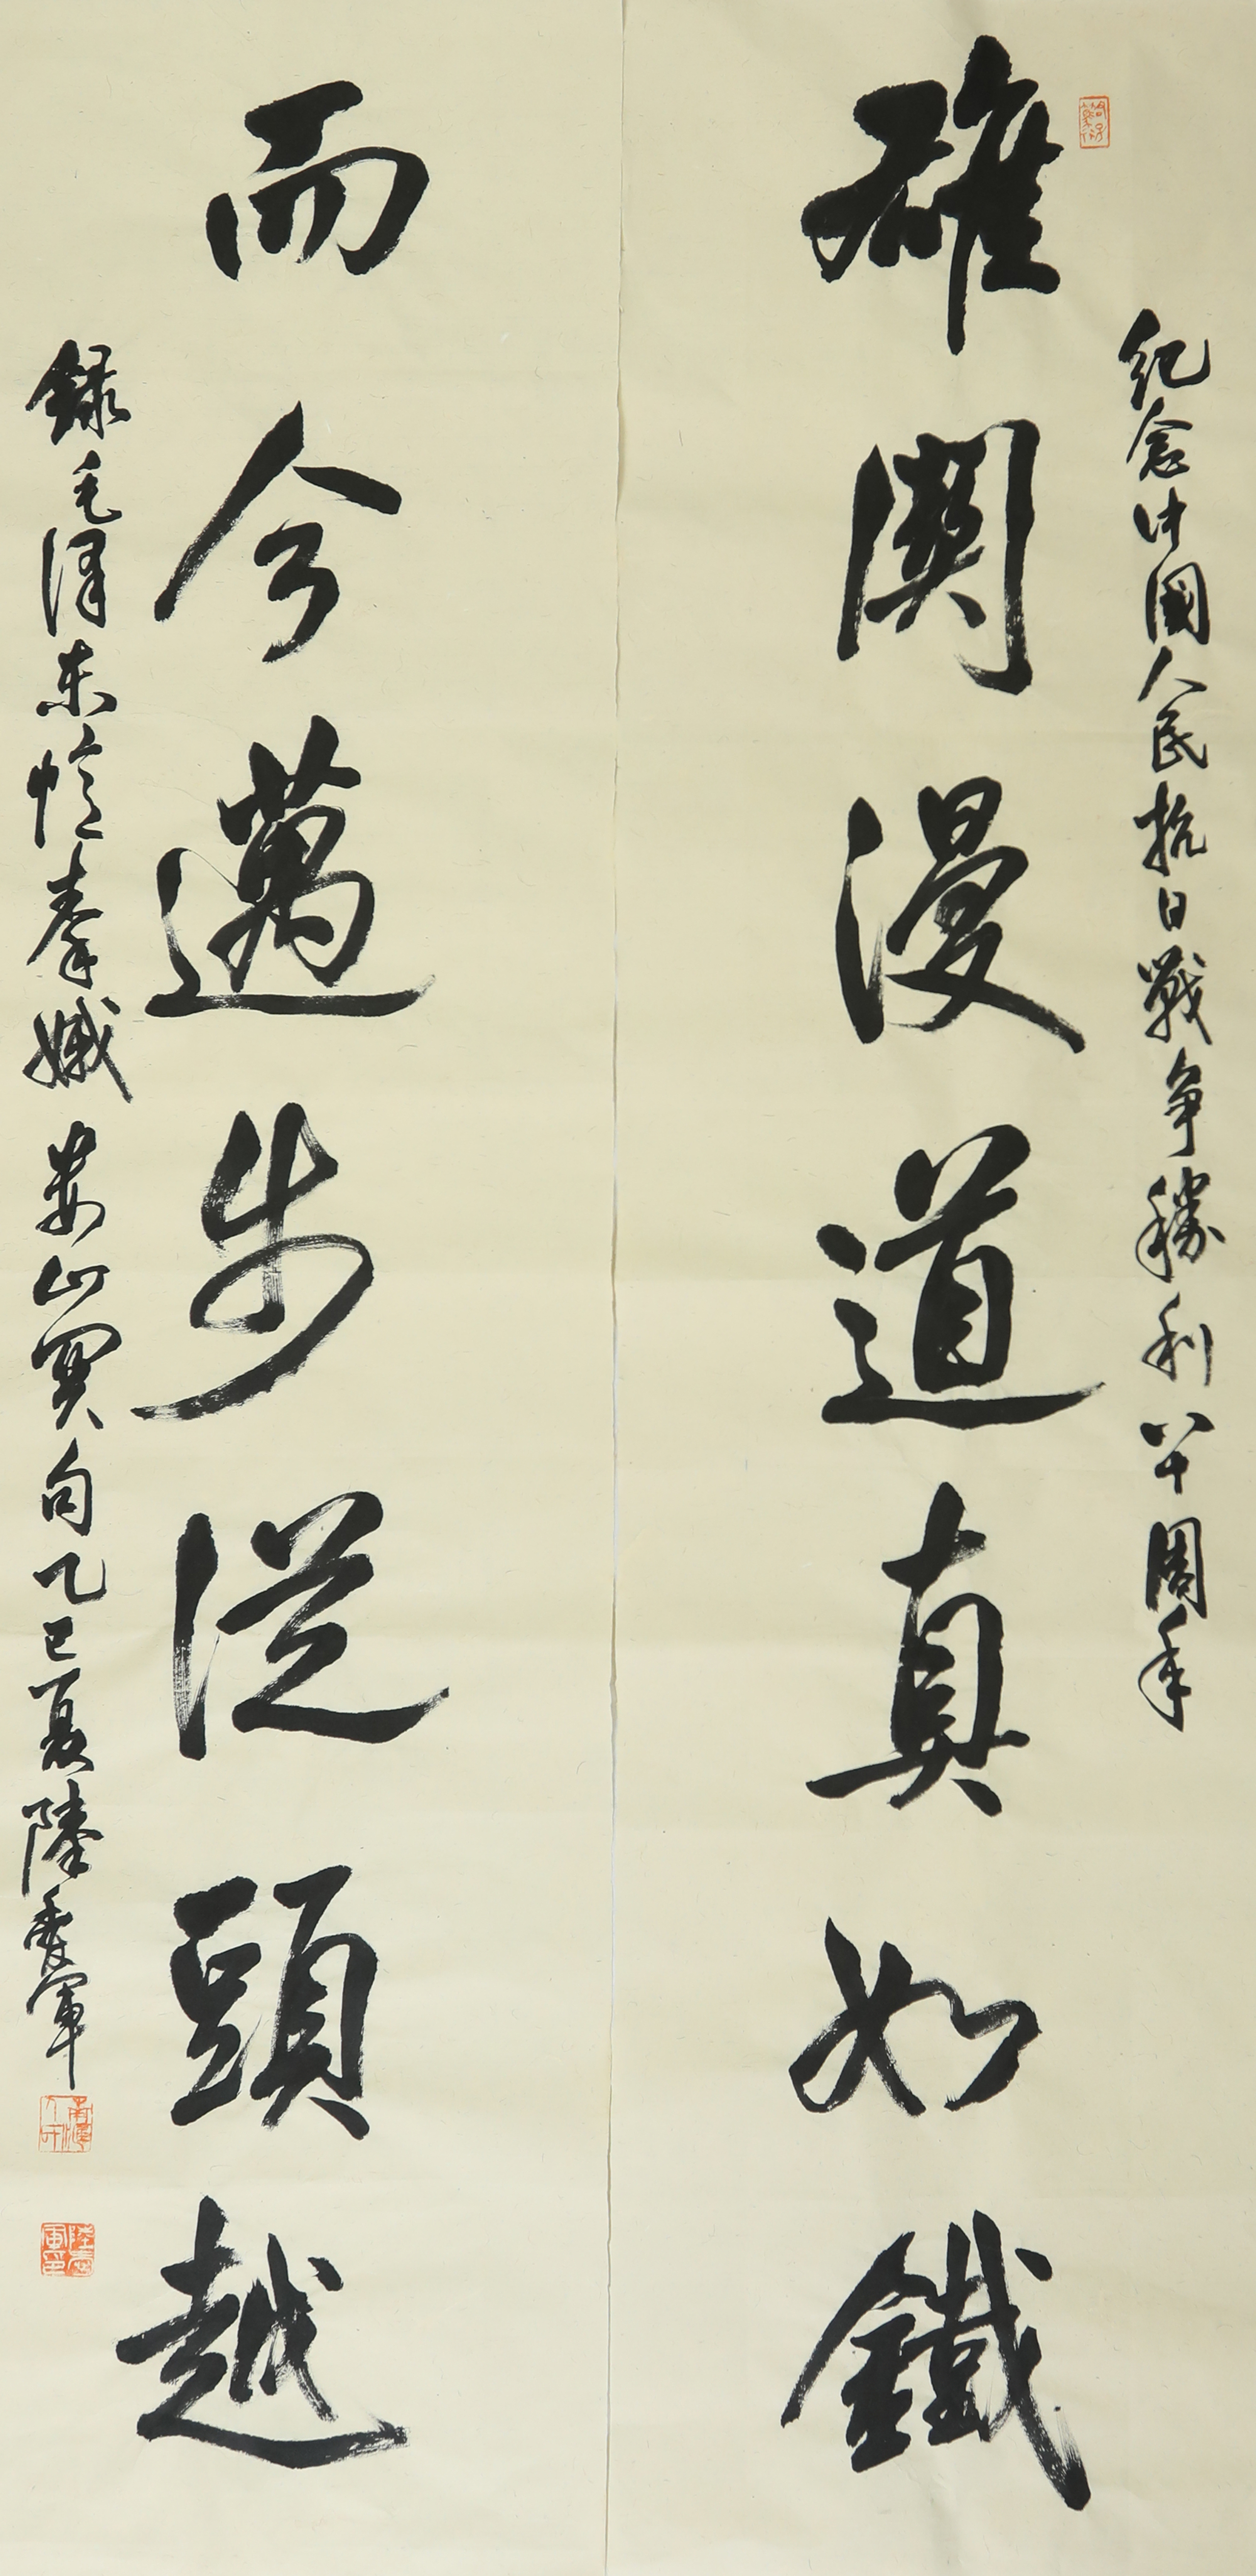 紀念中國人民抗日戰争勝利八十周年
雄關漫道真如鐵
而今邁步從頭越
錄毛澤東憶秦娥婁山關句乙巳夏陸愛軍